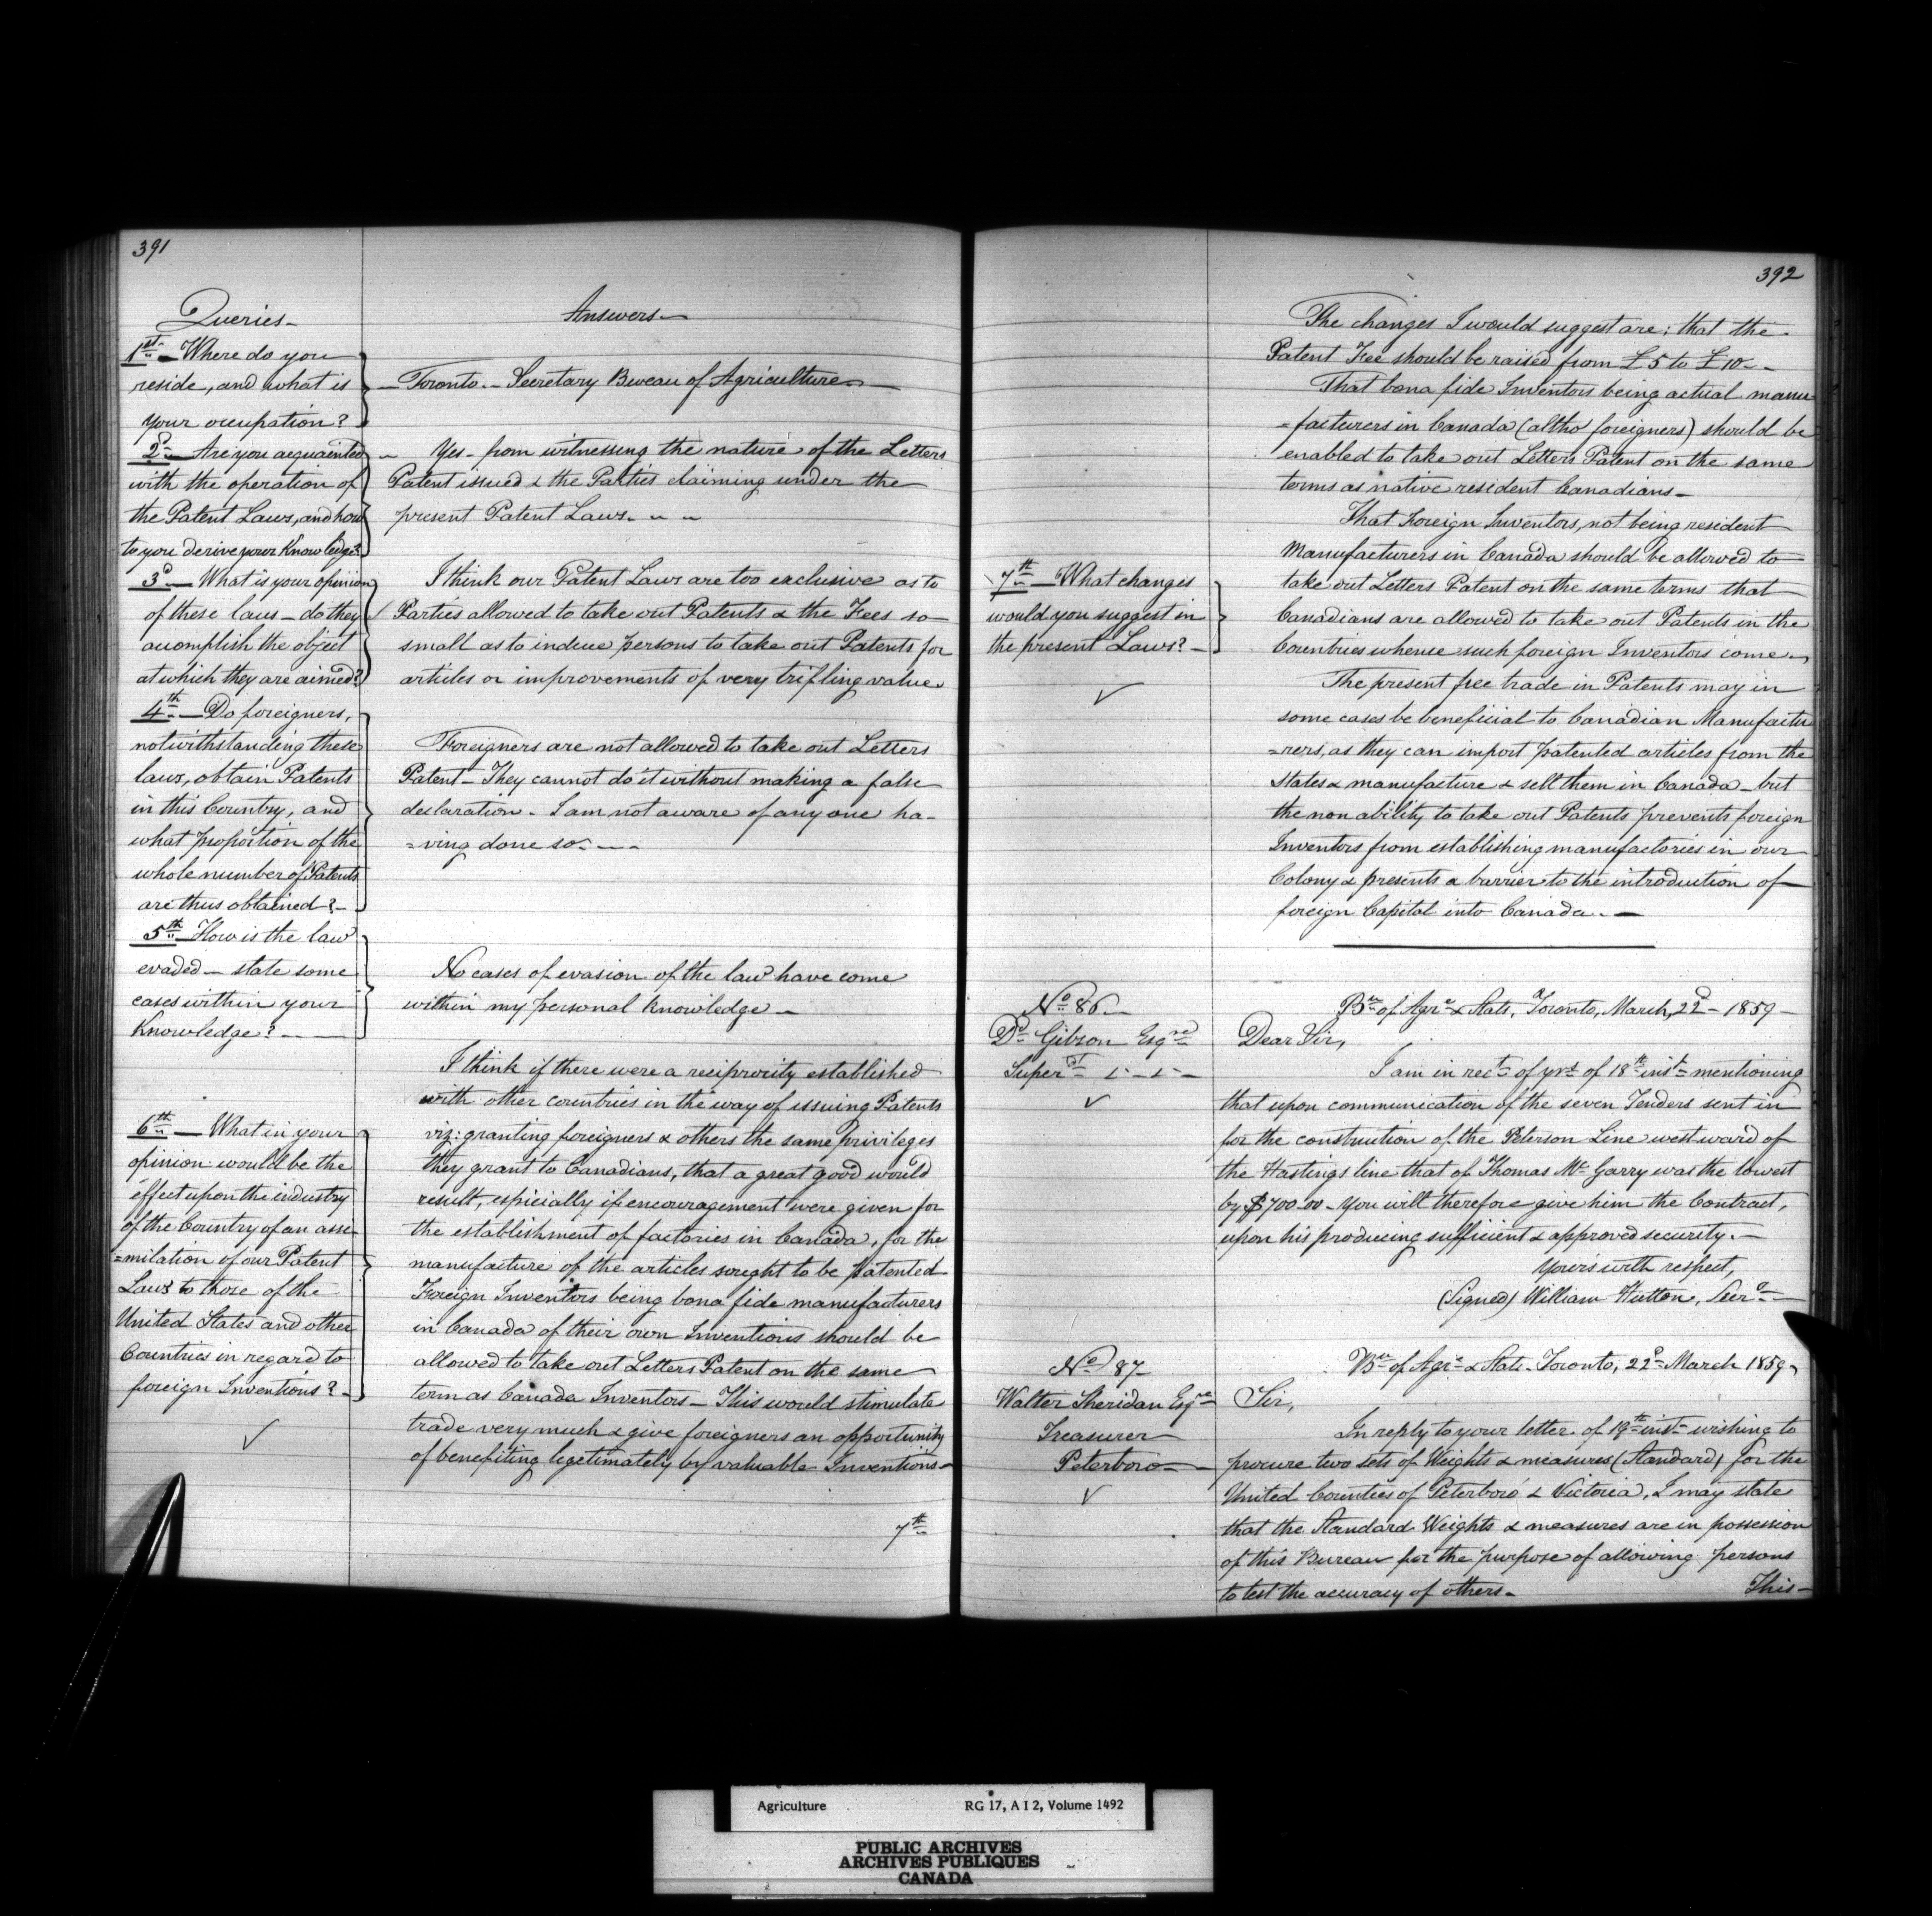 391
Queries-
1st- Where do you
reside, and what is
your occupation?
2d- Are you acquainted
with the operation of
the Patent Laws, and how
to you derive your Knowledge?
3d- What is your opinion
of these laws - do they
accomplish the object
at which they are aimed?
4th- Do foreigners,
notwithstanding these
laws, obtain Patents
in this Country, and
what proportion of the
whole number of Patents
are thus obtained?-
5th- How is the law
evaded - state some
cases within your
Knowledge?-
6th- What in your
opinion would be the
effect upon the industry
of the Country of an assi-
=milation of our Patent
Laws to those of the
United States and other
Countries in regard to
foreign Inventions?-
Answers-
Toronto.- Secretary Bureau of Agriculture-
Yes- from witnessing the nature of the Letters
Patent issued & the Parties claiming under the
present Patent Laws.
I think our Patent Laws are too exclusive as to
Parties allowed to take out Patents & the Fees so
small as to induce persons to take out Patents for
articles or improvements of very trifling value.
Foreigners are not allowed to take out Letters
Patent- They cannot do it without making a false
declaration. I am not aware of any one ha-
=ving done so.
No cases of evasion of the law have come
within my personal Knowledge-
I think if there were a reciprocity established
with other countries in the way of issuing Patents
viz: granting foreigners & others the same privileges
they grant to Canadians, that a great good would
result, especially if encouragement were given for
the establishment of factories in Canada, for the
manufacture of the articles sought to be patented
Foreign Inventors being bona fide manufacturers
in Canada of their own Inventions should be
allowed to take out Letters Patent on the same
term as Canada Inventors- This would stimulate
trade very much & give foreigners an opportunity
of benefiting legetimately by valuable Inventions-
7th
392
7th- What changes
would you suggest in
the present Laws?-
The changes I would suggest are; that the
Patent Fee should be raised from £5 to £10-
That bona fide Inventors being actual manu
=facturers in Canada (altho' foreigners) should be
enabled to take out Letters Patent on the same
terms as native resident Canadians-
That Foreign Inventors, not being resident
Manufacturers in Canada should be allowed to
take out Letters Patent on the same terms that
Canadians are allowed to take out Patents in the
Countries whence such foreign Inventors come.
The present free trade in Patents may in
some cases be beneficial to Canadian Manufactu
=rers, as they can import patented articles from the
States & manufacture & sell them in Canada - but
the non ability to take out Patents prevents foreign
Inventors from establishing manufactories in our
Colony & presents a barrier to the introduction of
foreign Capital into Canada.-
No 86
Dd Gibson Esqre
Superdt
Bu of Agre & Stats, Toronto, March, 22d- 1859-
Dear Sir,
I am in rect of yrs of 18th inst mentioning
that upon communication of the seven Tenders sent in
for the construction of the Peterson Line westward of
the Hastings line that of Thomas McGarry was the lowest
by $700.00- you will therefore give him the Contract,
upon his producing sufficient & approved security.-
Yours with respect,
(Signed) William Hutton, Secry
No 87
Walter Sheridan Esqre
Treasurer
Peterboro
Bu of Agre & Stats. Toronto, 22d March 1859
Sir,
In reply to your letter of 19th inst wishing to
procure two sets of Weights & measures (Standard) for the
United Counties of Peterboro & Victoria, I may state
that the Standard Weights & measures are in possession
of this Bureau for the purpose of allowing persons
to test the accuracy of others-
This-
Agriculture RG 17, A I 2, Volume 1492
PUBLIC ARCHIVES
ARCHIVES PUBLIQUES
CANADA